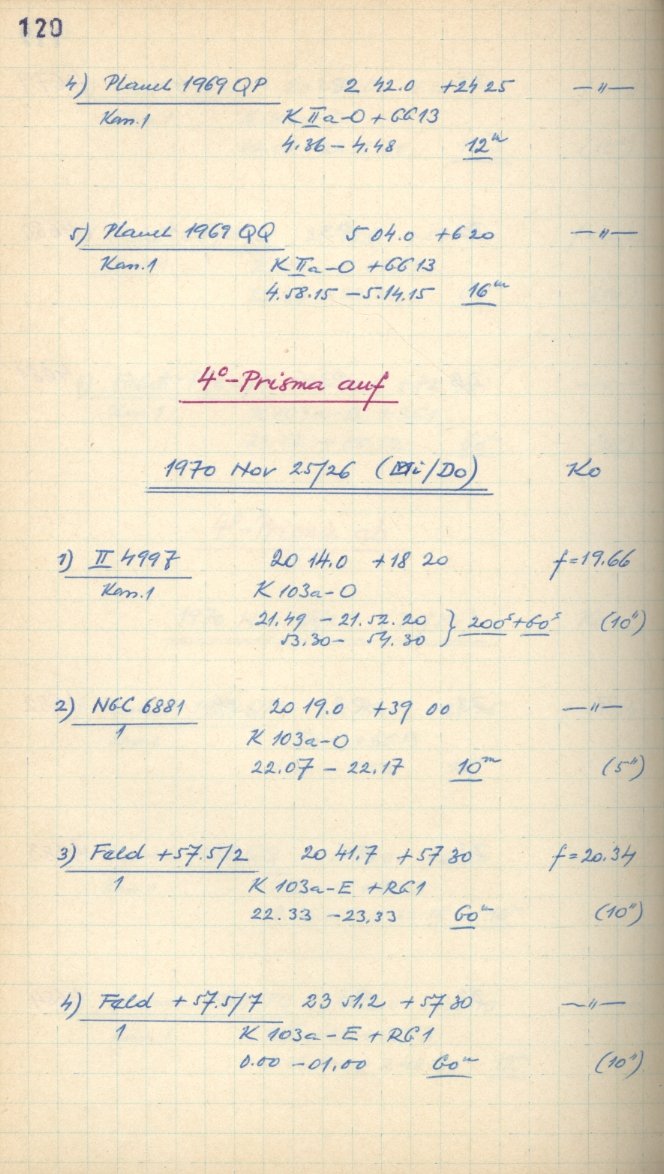 120
4) Planet 1969 QP 2 42.0 +24 25 —"—
Kass.1 K IIa-O + GG13
4.36 – 4.48 12ᵐ
5) Planet 1969 QQ 5 04.0 +6 20 —"—
Kass.1 K IIa-O + GG13
4.58.15 – 5.14.15 16ᵐ
4°-Prisma auf
1970 Nov 25/26 (Mi/Do) Ko
1) II 4997 20 14.0 +18 20 f=19.66
Kass.1 K 103a-O
21.49 – 21.52.20 } 200ˢ+60ˢ (10")
53.30 – 54.30
2) NGC 6881 20 19.0 +39 00 —"—
1 K 103a-O
22.07 – 22.17 10ᵐ (5")
3) Feld +57.5/2 20 41.7 +57 30 f=20.34
1 K 103a-E + RG1
22.33 – 23.33 60ᵐ (10")
4) Feld +57.5/7 23 51.2 +57 30 —"—
1 K 103a-E + RG1
0.00 – 01.00 60ᵐ (10")